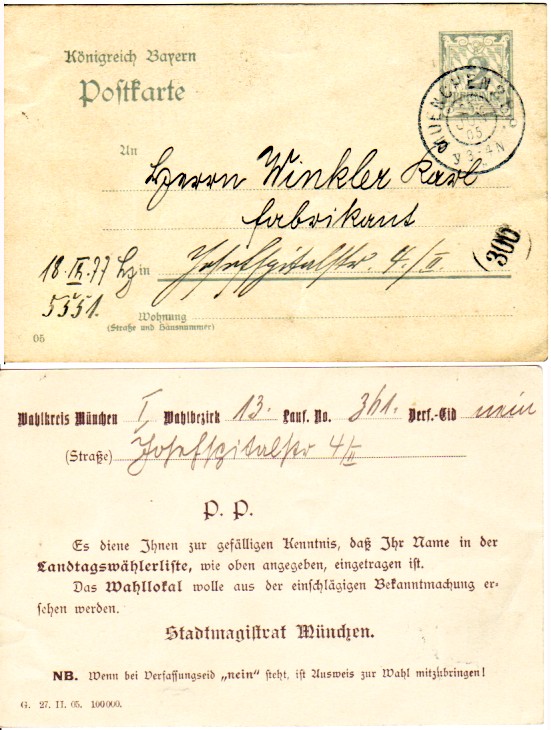 Königreich Bayern
Postkarte
2
MUENCHEN 2
05
3-4 N
An
Herrn Winkler Karl
Fabrikant
in Josefspitalstr. 4/II.
(306)
18. IX. 77
5551.
Wohnung
(Straße und Hausnummer)
05
Wahlkreis München I Wahlbezirk 13. Lauf. No. 361. Verf.-Eid nein
(Straße) Josefspitalstr 4/II
P. P.
Es diene Ihnen zur gefälligen Kenntnis, daß Ihr Name in der
Landtagswählerliste, wie oben angegeben, eingetragen ist.
Das Wahllokal wolle aus der einschlägigen Bekanntmachung er-
sehen werden.
Stadtmagistrat München.
NB. Wenn bei Verfassungseid „nein" steht, ist Ausweis zur Wahl mitzubringen!
G. 27. II. 05. 100000.